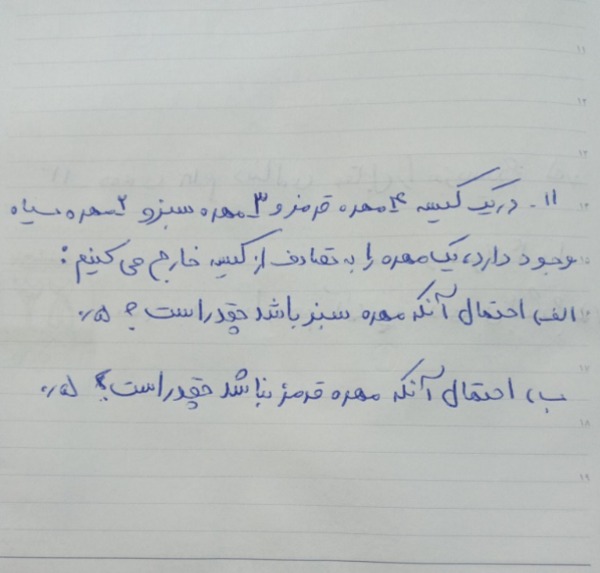 ۱۱- در یک کیسه ۴ مهره قرمز و ۳ مهره سبز و ۲ مهره سیاه
وجود دارد، یک مهره را به تصادف از کیسه خارج می کنیم:
الف) احتمال آنکه مهره سبز باشد چقدر است؟ ۰/۵
ب) احتمال آنکه مهره قرمز نباشد چقدر است؟ ۰/۵
۱۱
۱۲
۱۳
۱۴
۱۵
۱۶
۱۷
۱۸
۱۹